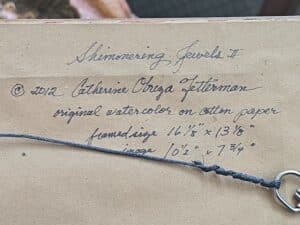 Shimmering Jewels II
© 2012 Catherine Obreza Fetterman
original watercolor on cotton paper
framed size 16 1/8" x 13 1/8"
image 10 1/2" x 7 3/4"